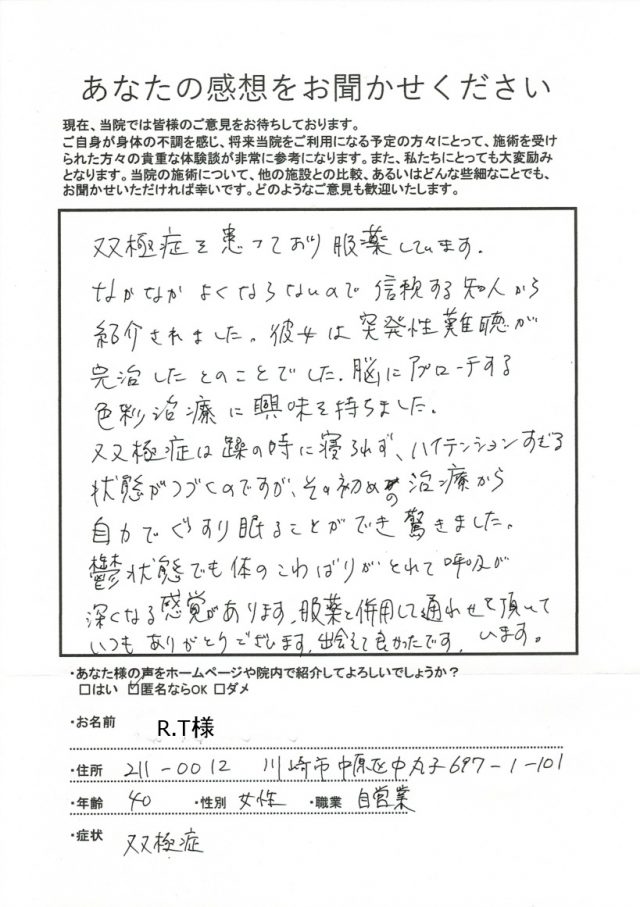 あなたの感想をお聞かせください
現在、当院では皆様のご意見をお待ちしております。
ご自身が身体の不調を感じ、将来当院をご利用になる予定の方々にとって、施術を受け
られた方々の貴重な体験談が非常に参考になります。また、私たちにとっても大変励み
となります。当院の施術について、他の施設との比較、あるいはどんな些細なことでも、
お聞かせいただければ幸いです。どのようなご意見も歓迎いたします。
双極症を患っており服薬しています.
なかなかよくならないので信頼する知人から
紹介されました。彼女は突発性難聴が
完治したとのことでした.脳にアプローチする
色彩治療に興味を持ちました.
双極症は躁の時に寝られず、ハイテンションすぎる
状態がつづくのですが、その初めの治療から
自力でぐっすり眠ることができ驚きました。
鬱状態でも体のこわばりがとれて呼吸が
深くなる感覚があります.服薬と併用して通わせて頂いて
います。
いつもありがとうございます.出会えて良かったです.
・あなた様の声をホームページや院内で紹介してよろしいでしょうか？
□はい ☑匿名ならOK □ダメ
・お名前 R.T様
・住所 211-0012 川崎市中原区中丸子697-1-101
・年齢 40 ・性別 女性 ・職業 自営業
・症状 双極症